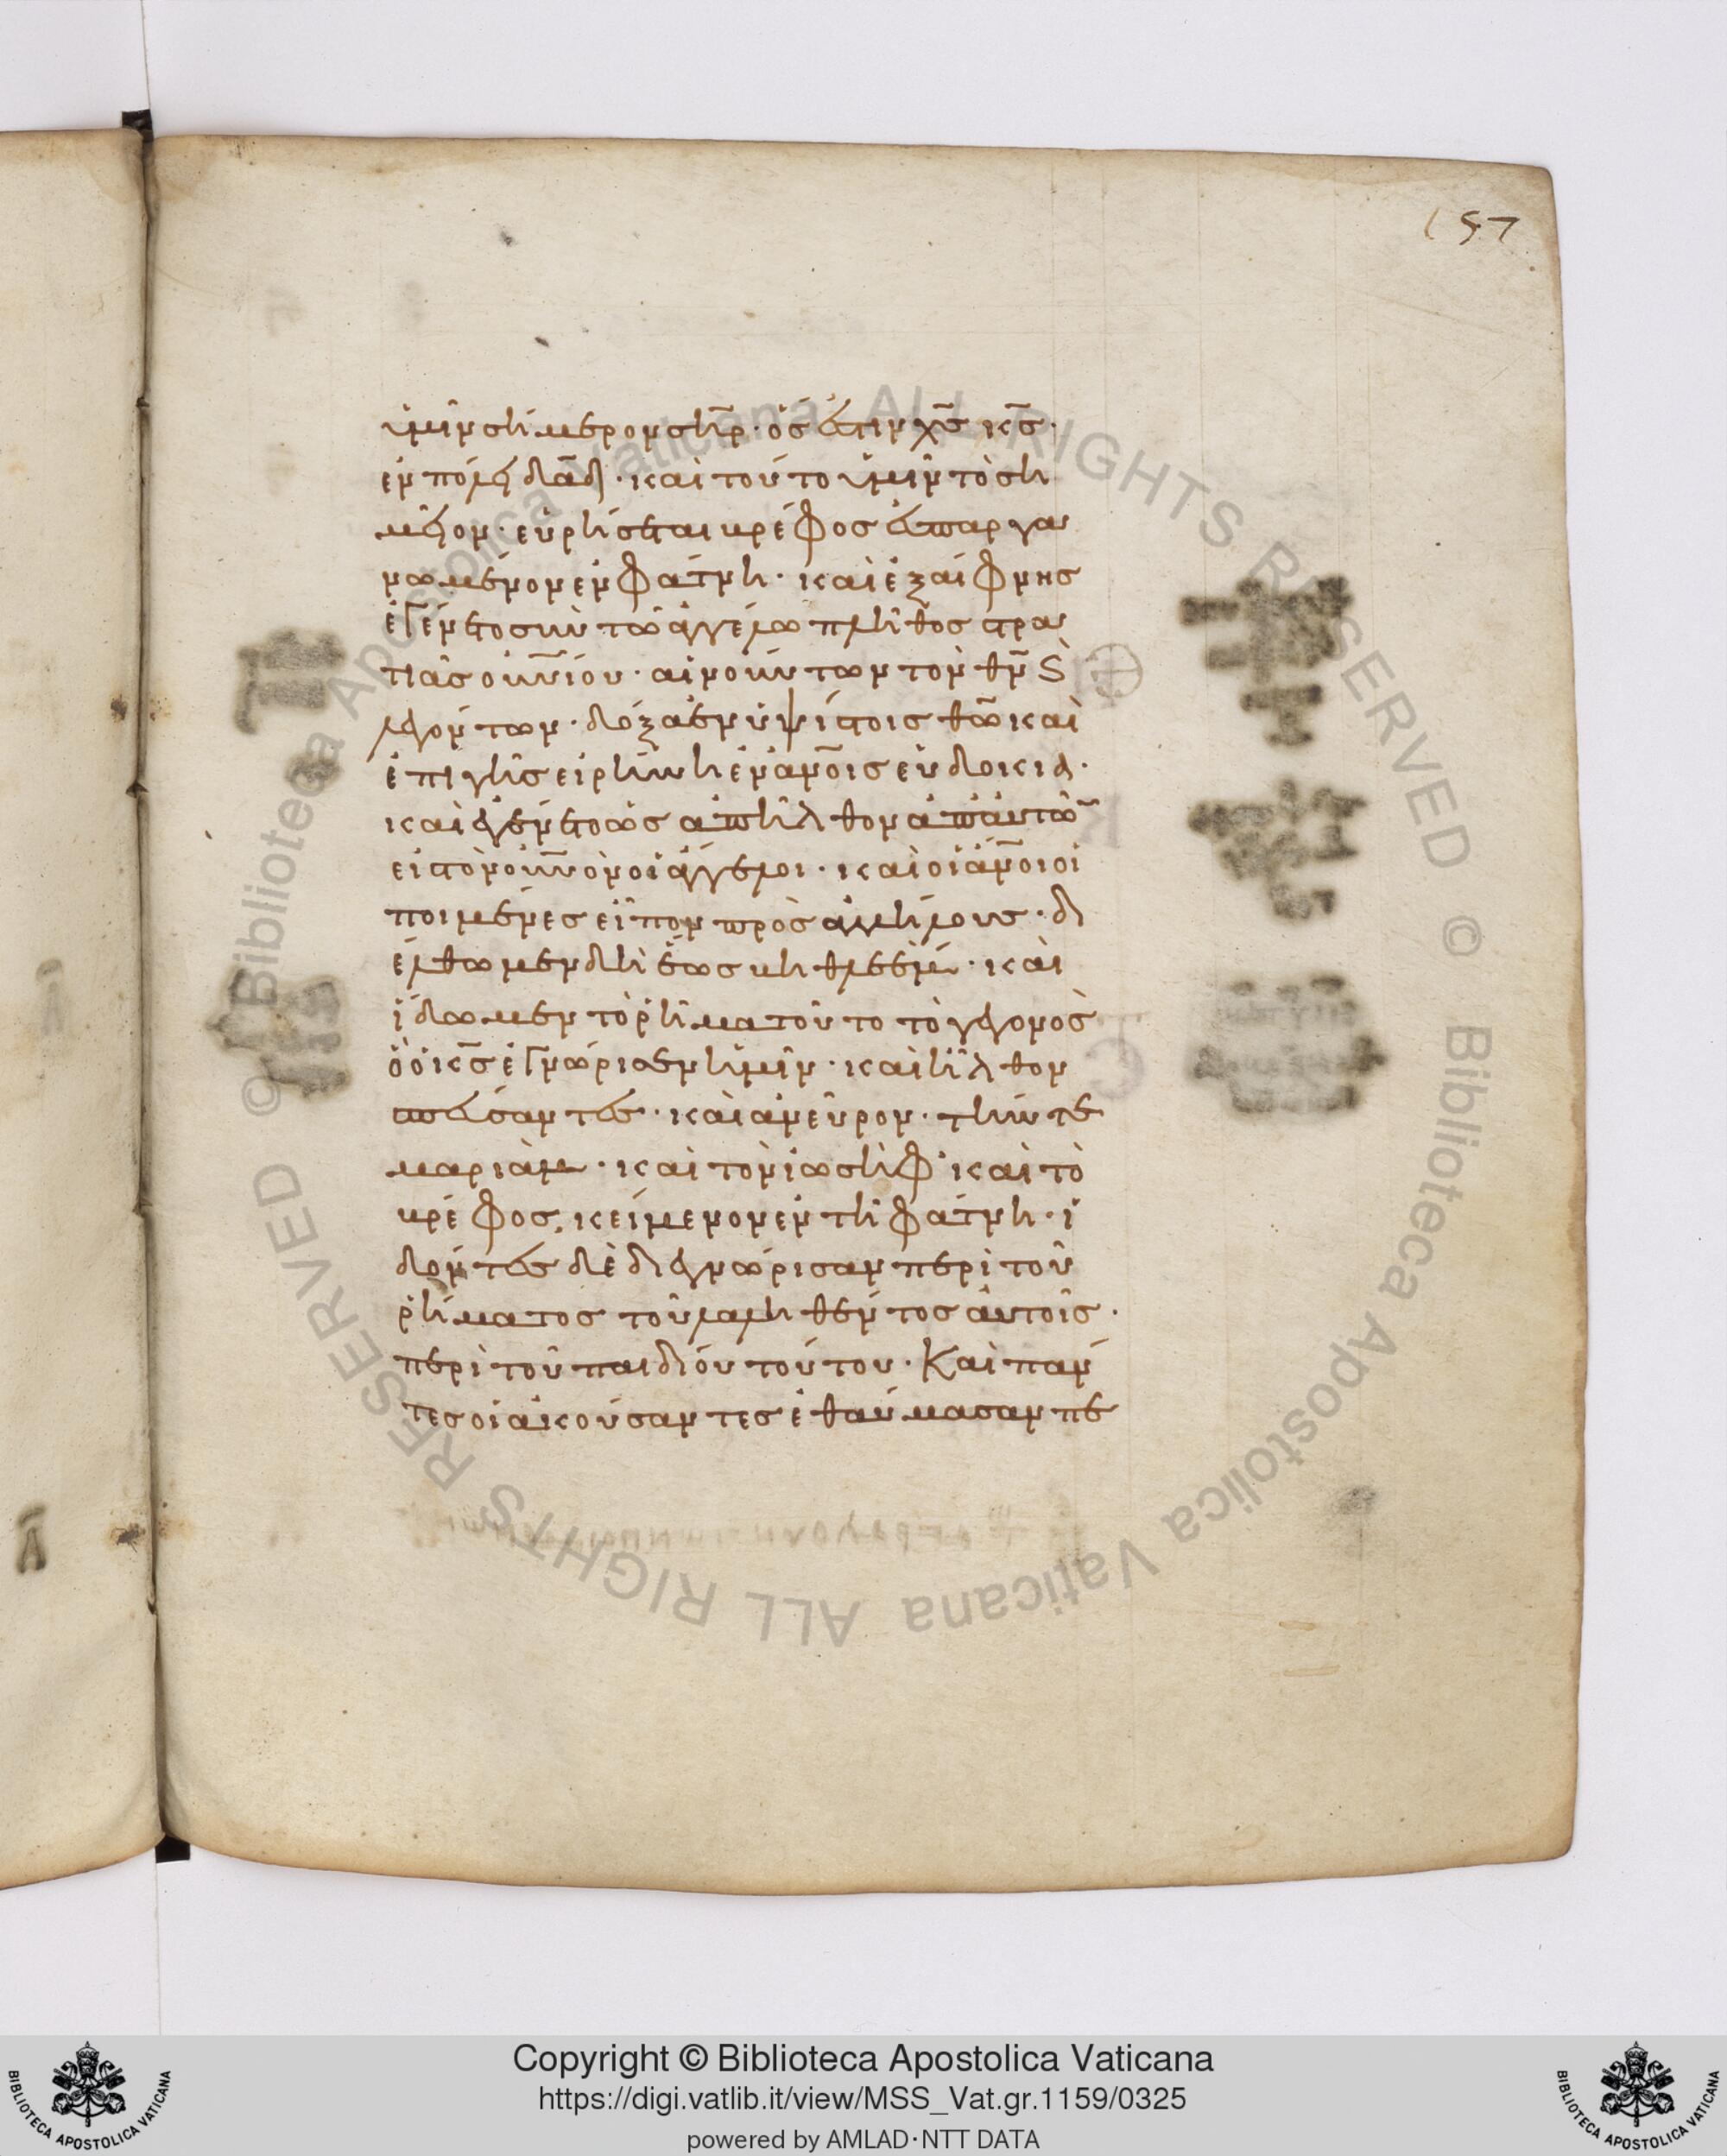 157
ὑμῖν σήμερον ση̅ρ· ὅς ἐστιν χ̅σ κ̅σ·
ἐν πόλει δα̅δ· καὶ τοῦτο ὑμῖν τὸ ση
μεῖον· εὑρήσεται βρέφος ἐσπαργα
νωμένον ἐν φάτνη· καὶ ἐξαίφνης
ἐγένετο σὺν τῶ ἀγγέλω πλῆθος στρα
τιᾶς οὐ̅νίου· αἰνούντων τὸν θ̅ν ϗ
λεγόντων· δόξα ἐν ὑψίστοις θ̅ω καὶ
ἐπι γῆς εἰρήνη ἐν ἀν̅οις εὐδοκία·
καὶ ἐγένετο ὡς ἀπῆλθον ἀπ αὐτῶ̅
εἰς τὸν οὐ̅νὸν οἱ ἄγγελοι· καὶ οἱ ἄν̅οι οἱ
ποιμένες εἶπον πρὸς ἀλλήλους· δι
έλθωμεν δὴ ἕως βηθλεὲμ· καὶ
ἴδωμεν τὸ ῥῆμα τοῦτο τὸ γεγονὸς
ὃ ὁ κ̅σ ἐγνώρισεν ἡμῖν· καὶ ἦλθον
σπεύσαντες· καὶ ἀνεῦρον· τήν τε
μαριὰμ· καὶ τὸν ἰωσὴφ· καὶ τὸ
βρέφος, κείμενον ἐν τῆ φάτνη· ἰ
δόντες δὲ διεγνώρισαν περὶ τοῦ
ῥήματος τοῦ λαληθέντος αὐτοῖς·
περὶ τοῦ παιδίου τούτου· Καὶ πάν
τες οἱ ἀκούσαντες ἐθαύμασαν πε
© Biblioteca Apostolica Vaticana ALL RIGHTS RESERVED © Biblioteca Apostolica Vaticana ALL RIGHTS RESERVED
Copyright © Biblioteca Apostolica Vaticana
https://digi.vatlib.it/view/MSS_Vat.gr.1159/0325
powered by AMLAD·NTT DATA
BIBLIOTECA APOSTOLICA VATICANA
BIBLIOTECA APOSTOLICA VATICANA